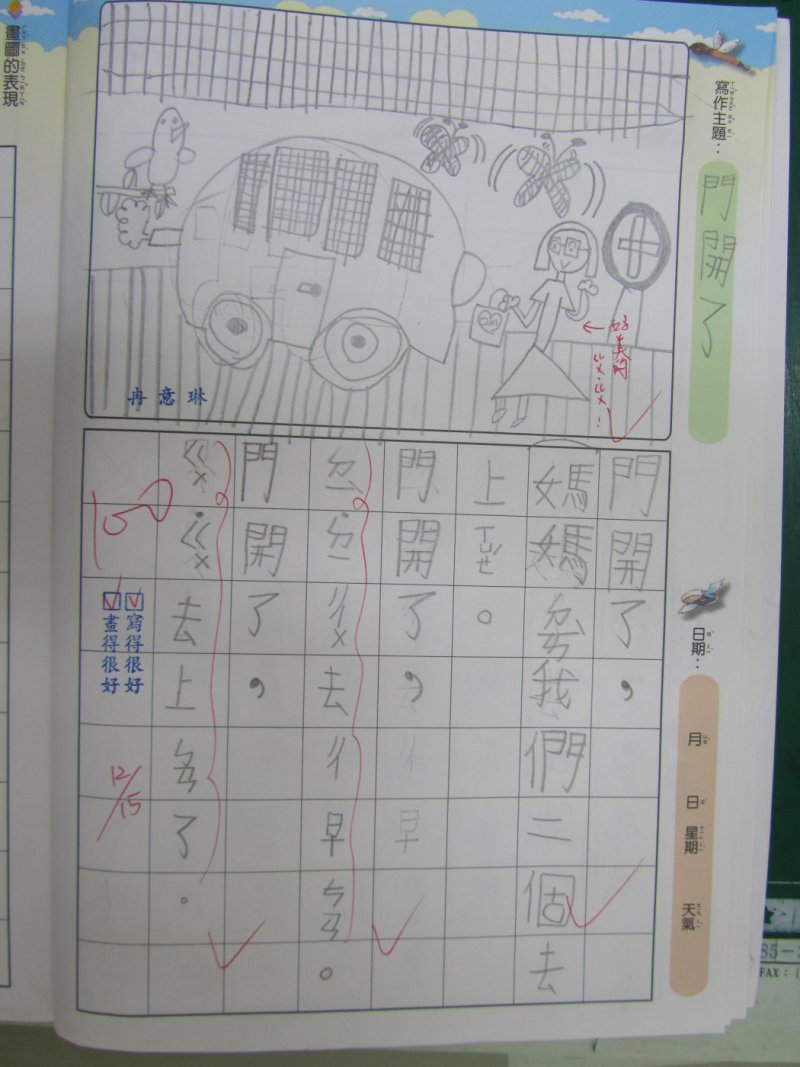 寫作主題：
門開了
日期：
月
日
星期
天氣
畫圖的表現
好美阿
ㄍㄨ˙ㄍㄨ！
冉意琳
門開了，
媽媽ㄉㄞ我們二個去
上ㄒㄩㄝˊ。
門開了，
ㄉㄧ˙ㄉㄧㄔㄨ去ㄔ早ㄘㄢ。
門開了，
ㄍㄨ˙ㄍㄨ去上ㄅㄢ了。
100
寫得很好
畫得很好
12/15
FAX：(